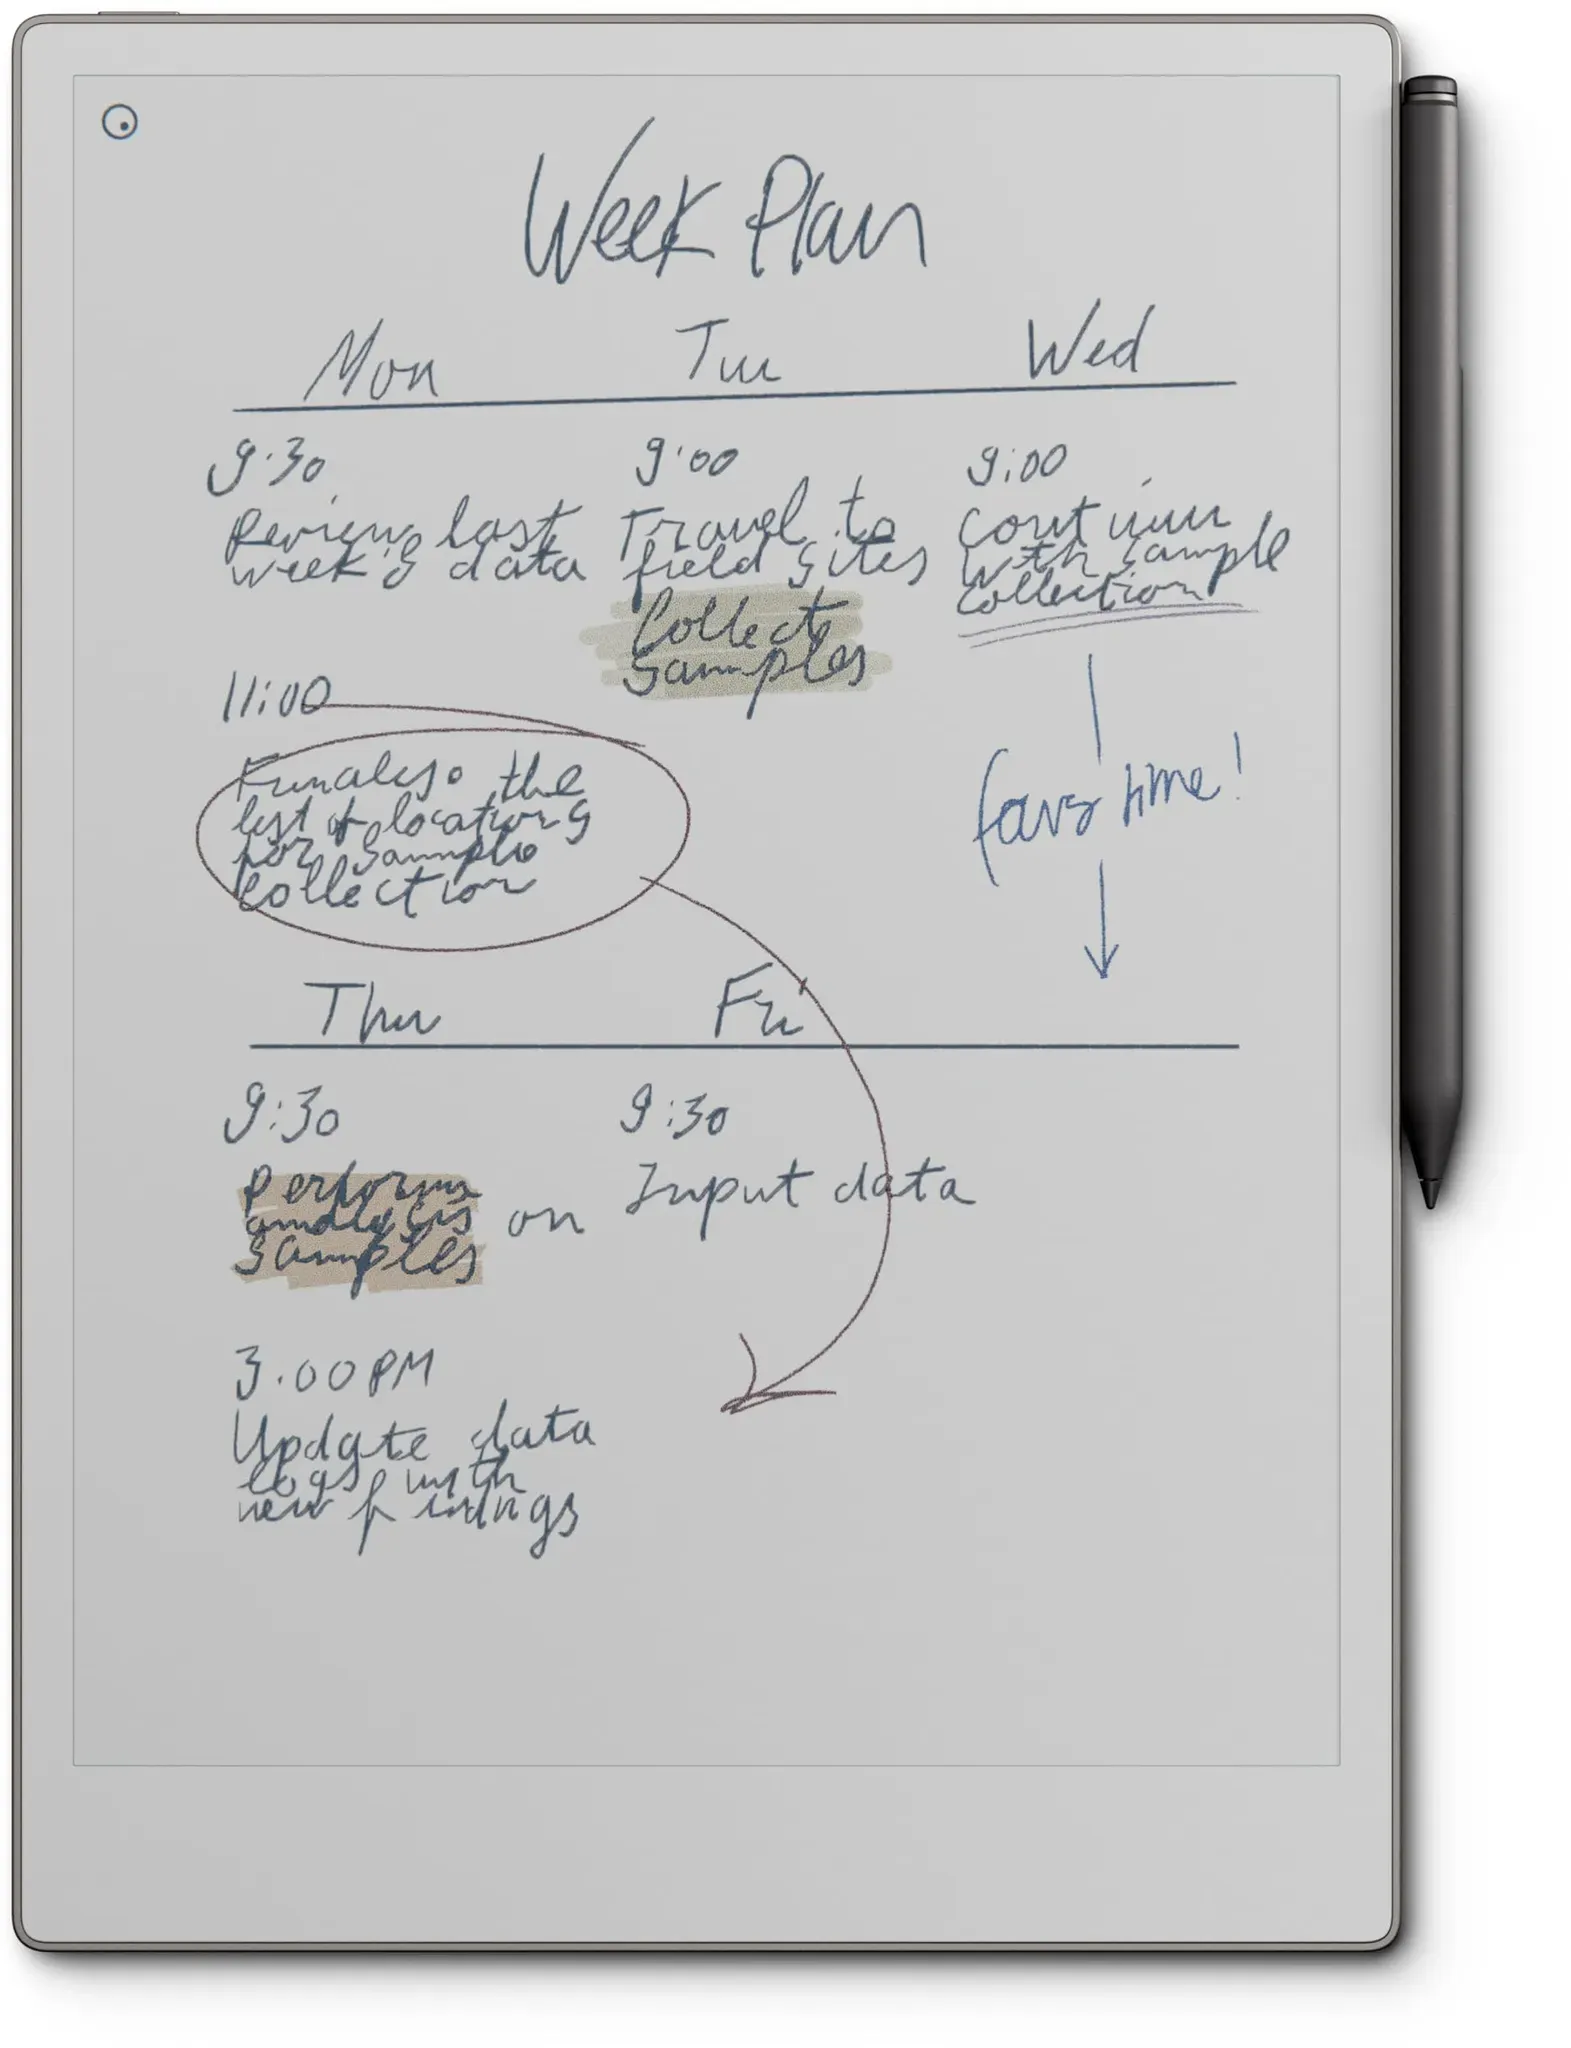 Week Plan
Mon Tue Wed
9:30
Review last
week's data
11:00
Finalise the
list of locations
for sample
collection
9:00
Travel to
field sites
Collect
samples
9:00
Continue
with sample
collection
fav time!
Thu Fri
9:30
Perform
analysis on
samples
3.00 PM
Update data
logs with
new findings
9:30
Input data